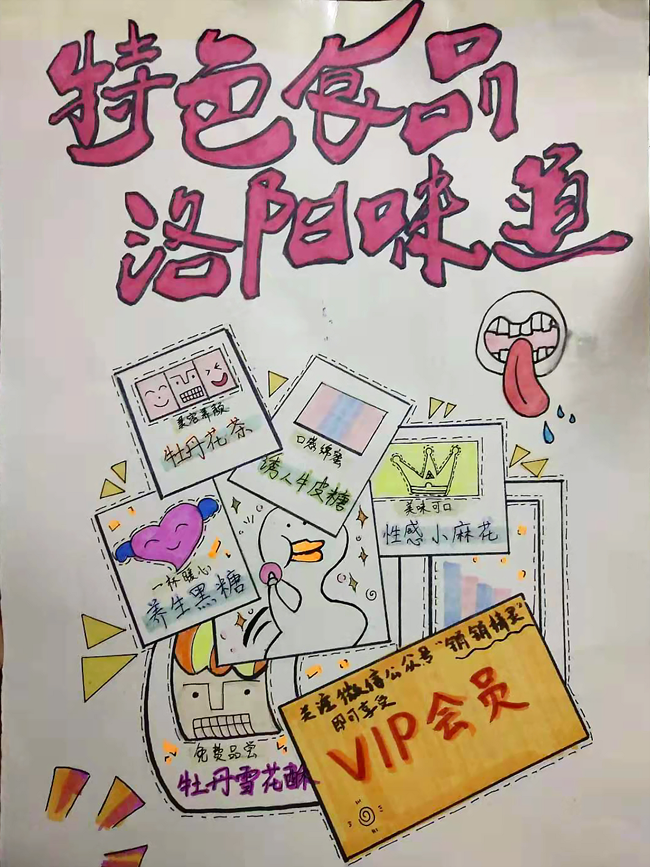 特色食品
洛阳味道
美容养颜
牡丹花茶
口感绵密
诱人牛皮糖
美味可口
性感小麻花
一杯暖心
养生黑糖
关注微信公众号"销销精灵"
即可享受
VIP会员
免费品尝
牡丹雪花酥